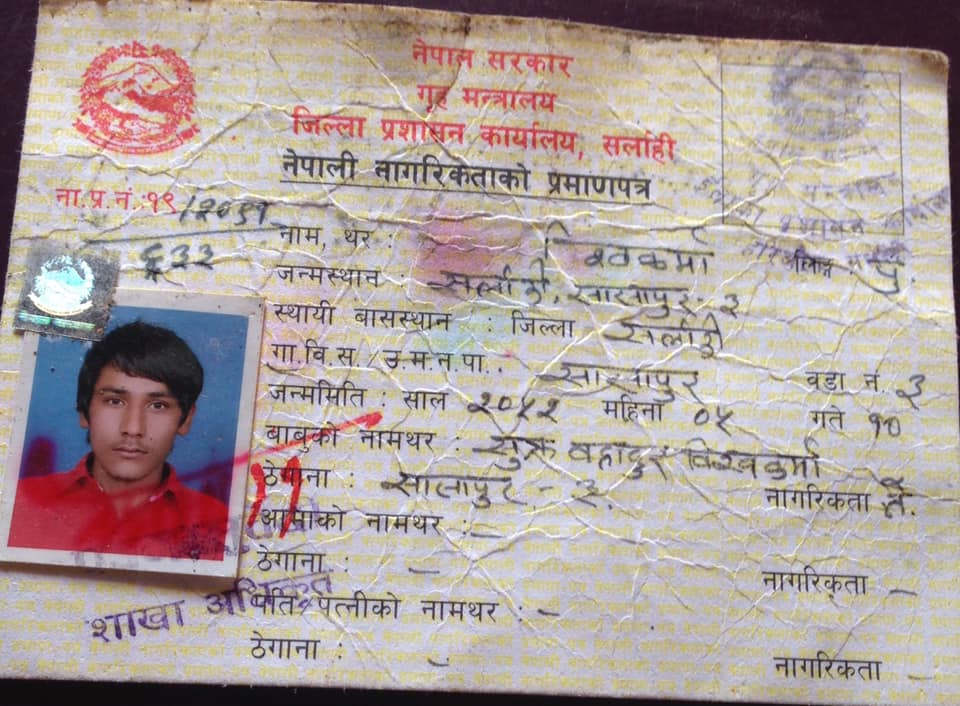 नेपाल सरकार
गृह मन्त्रालय
जिल्ला प्रशासन कार्यालय, सर्लाही
नेपाली नागरिकताको प्रमाणपत्र
ना.प्र.नं.:१९/२०५१
६३३२
नाम, थर : विश्वकर्मा लिङ्ग : पु.
जन्मस्थान : सर्लाही, सालापुर-३
स्थायी बासस्थान : जिल्ला सर्लाही
गा.वि.स./उ.म.न.पा.. सालापुर वडा नं. ३
जन्ममिति : साल २०५२ महिना ०५ गते १०
बाबुको नामथर : बहादुर विश्वकर्मा
ठेगाना : सालापुर - ३. नागरिकता ने.
आमाको नामथर :-
ठेगाना : - नागरिकता -
पति/पत्नीको नामथर : -
ठेगाना : - नागरिकता -
शाखा अधिकृत